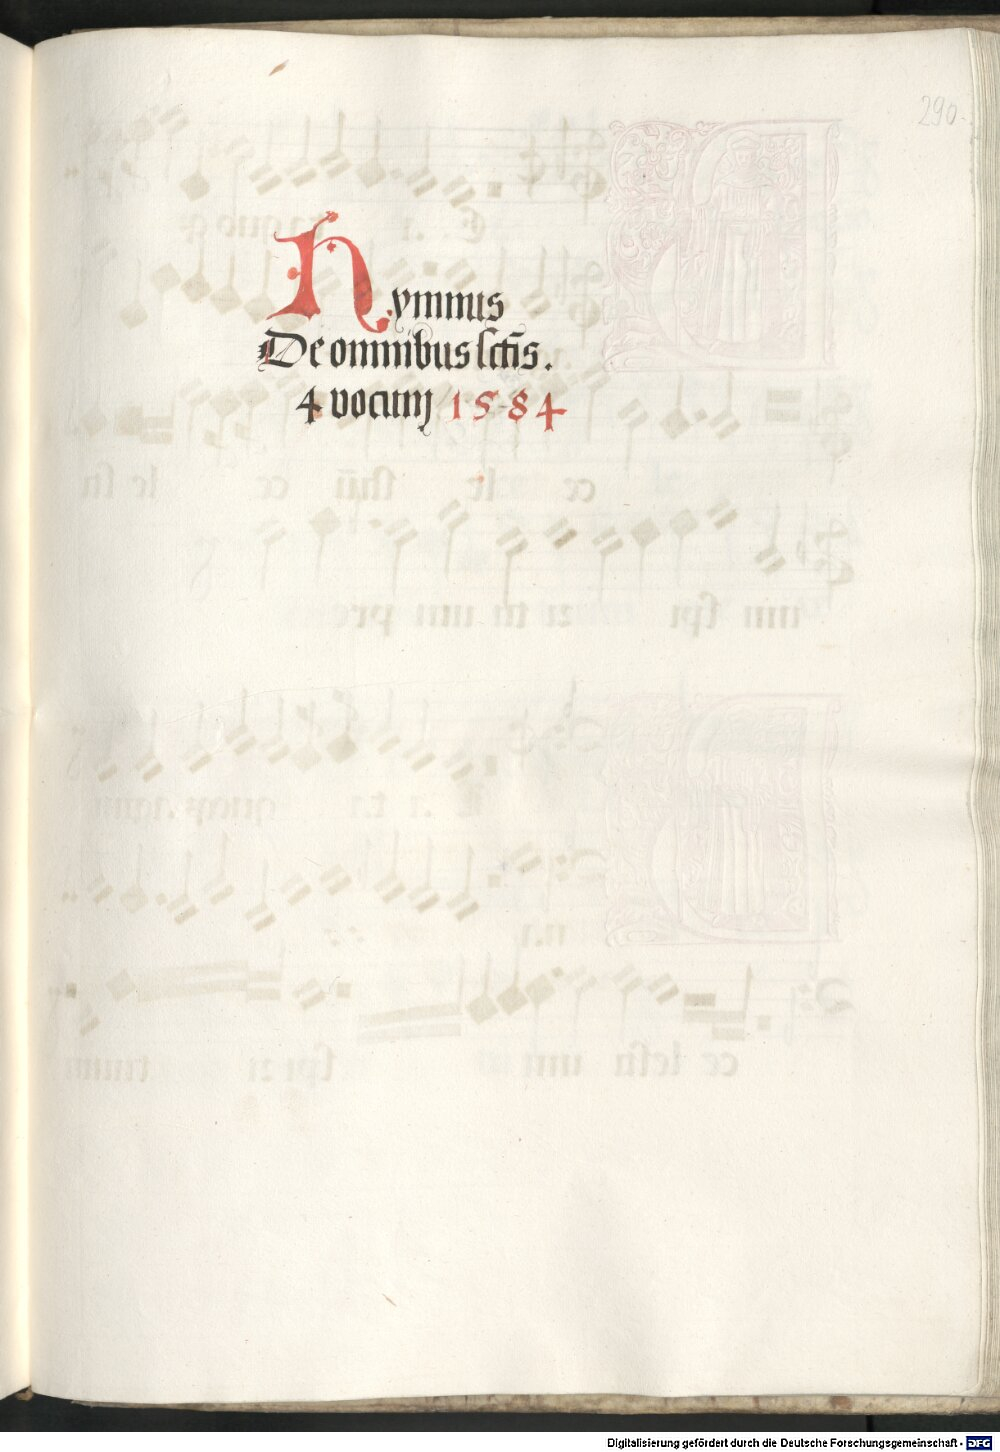 290.
Hymnus
De omnibus sctĩs.
4 vocum 1584
Digitalisierung gefördert durch die Deutsche Forschungsgemeinschaft - DFG